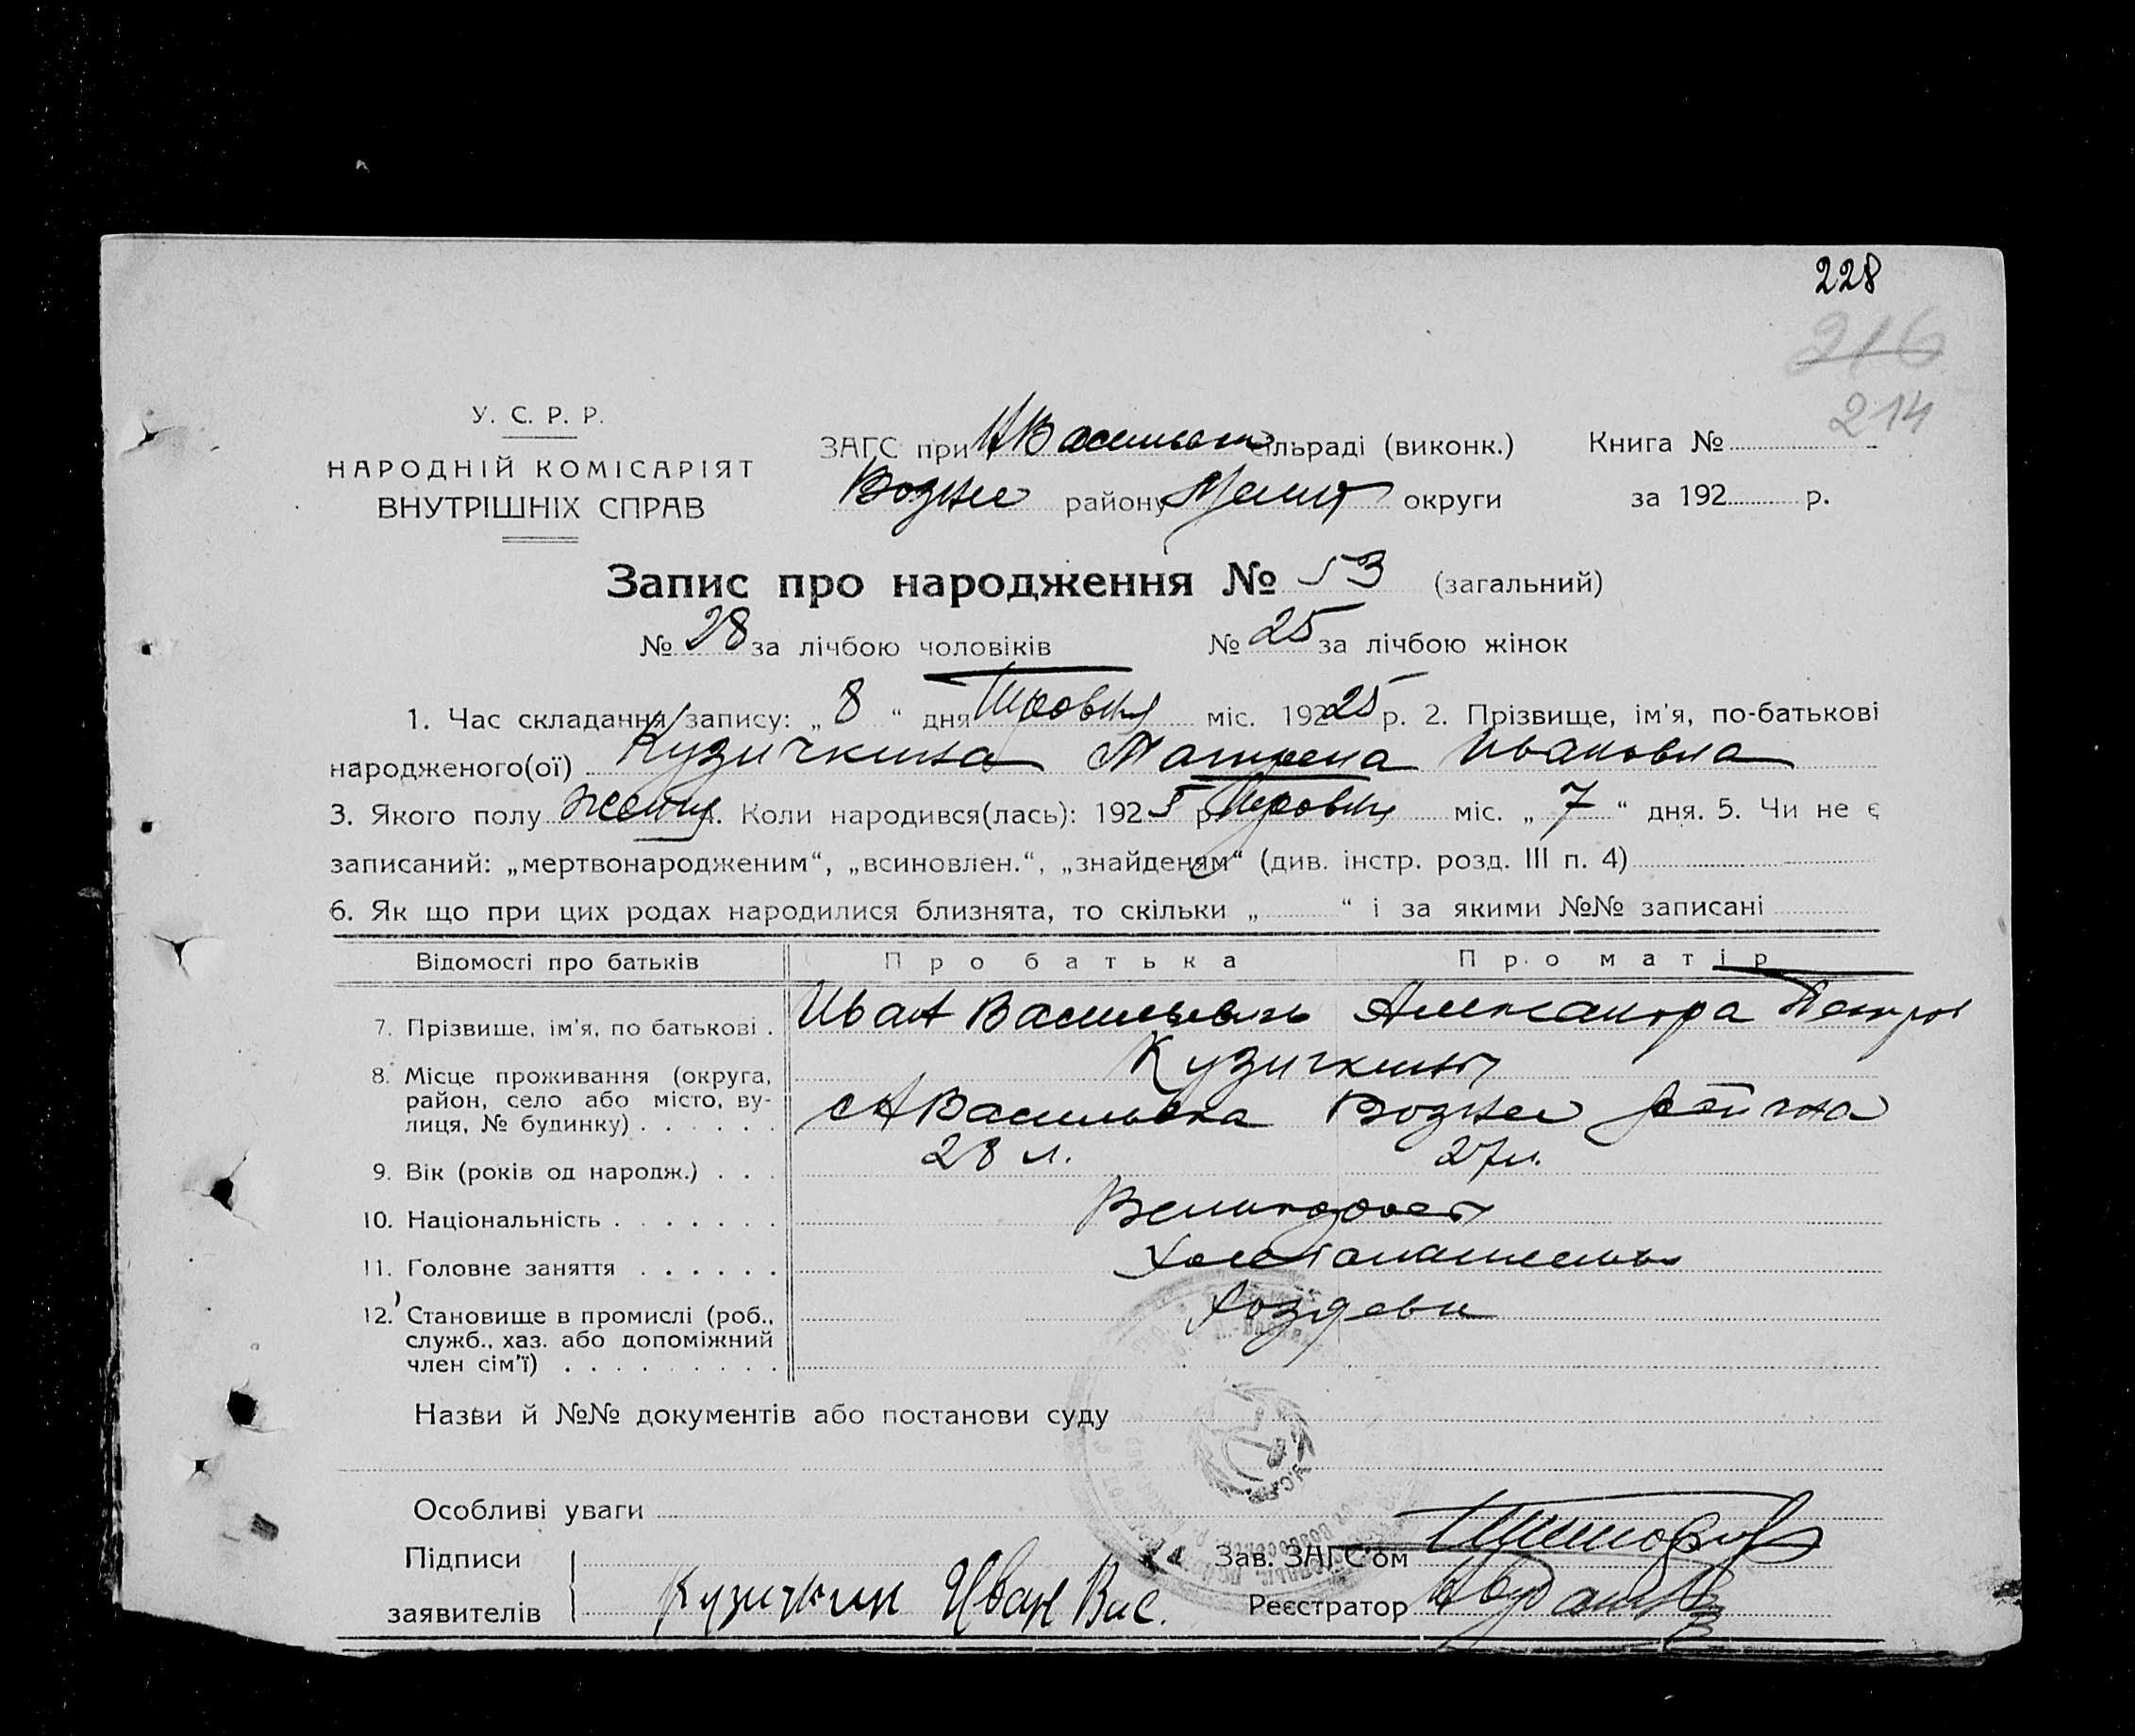 228
216
214
У. С. Р. Р.
НАРОДНІЙ КОМІСАРІЯТ
ВНУТРІШНІХ СПРАВ
ЗАГС при сільраді (виконк.) Книга №
Вознес району округи за 192 р.
Запис про народження № 53 (загальний)
№ 28 за лічбою чоловіків № 25 за лічбою жінок
1. Час складання запису: „ 8 “ дня міс. 192 25 р. 2. Прізвище, ім'я, по-батькові
народженого(ої) Кузичкина Матрена Ивановна
3. Якого полу 4. Коли народився(лась): 192 5 р. міс. „ 7 “ дня. 5. Чи не є
записаний: „мертвонародженим“, „всиновлен.“, „знайденям“ (див. інстр. розд. III п. 4)
6. Як що при цих родах народилися близнята, то скільки „ “ і за якими №№ записані
Відомості про батьків Про батька Про матір
7. Прізвище, ім'я, по батькові . Иван Васильевич Александра Петров
Кузичкины
8. Місце проживання (округа,
район, село або місто, ву-
лиця, № будинку) . . . . . . Васильевка Вознес
9. Вік (років од народж.) . . . 28 л. 27 л.
10. Національність . . . . . . .
11. Головне заняття . . . . . . Хлебопашень
12. Становище в промислі (роб.,
служб., хаз. або допоміжний
член сім'ї) . . . . . . . . .
Назви й №№ документів або постанови суду
Особливі уваги
Підписи Зав. ЗАГС'ом
заявителів Кузичкин Иван Вас. Реєстратор